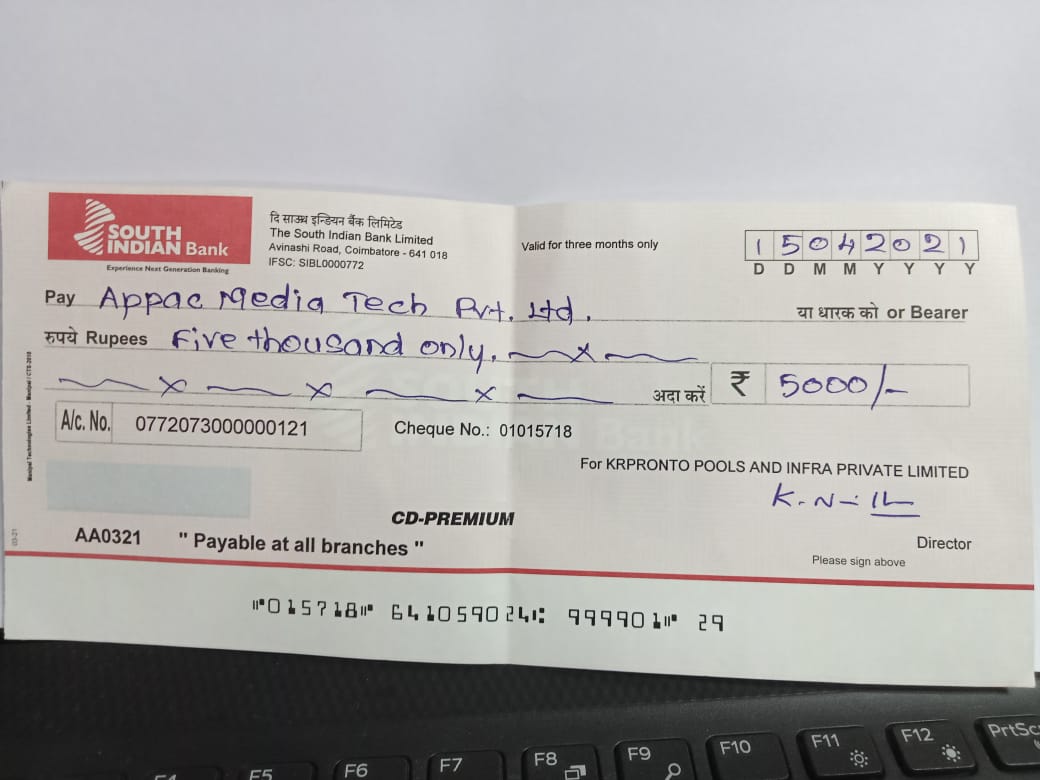 SOUTH
INDIAN Bank
Experience Next Generation Banking
दि साउथ इन्डियन बैंक लिमिटेड
The South Indian Bank Limited
Avinashi Road, Coimbatore - 641 018
IFSC: SIBL0000772
Valid for three months only
15042021
D D M M Y Y Y Y
Pay Appac Media Tech Pvt. Ltd. या धारक को or Bearer
रुपये Rupees Five thousand only.
अदा करें ₹ 5000/-
A/c. No. 0772073000000121
Cheque No.: 01015718
For KRPRONTO POOLS AND INFRA PRIVATE LIMITED
CD-PREMIUM
AA0321 " Payable at all branches "
Director
Please sign above
Manipal Technologies Limited - Manipal / CTS-2010
03-21
⑈015718⑈ 641059024⑆ 999901⑈ 29
F5 F6 F7 F8 F9 F10 F11 F12 PrtSc